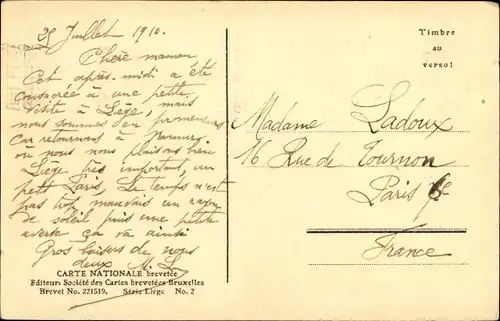 25 Juillet 1910.
Chère maman
Cet après-midi a été
consacrée à une petite
visite à Liège, mais
nous sommes d'en promeneurs
Car retournons à Namur
où nous nous plaisons bien
Liège très important, un
petit Paris, Le temps n'est
pas trop mauvais un rayon
de soleil puis une petite
averse ça va ainsi
Gros baisers de nous
deux M. L.
CARTE NATIONALE brevetée
Editeur: Société des Cartes brevetées Bruxelles
Brevet No. 221519. Série Liège No. 2
Timbre
au
verso!
Madame Ladoux
16 Rue de Tournon
Paris 6e
France